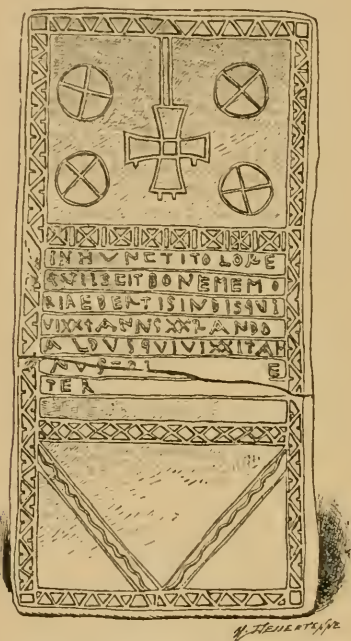 INHVNCTITOLORE
QVIISCITBONEMEMO
RIAEBERTISINDISQVI
VIXXITANNSXXRANDO
ALDVSQVIVIXXITAN
NVS E
TER